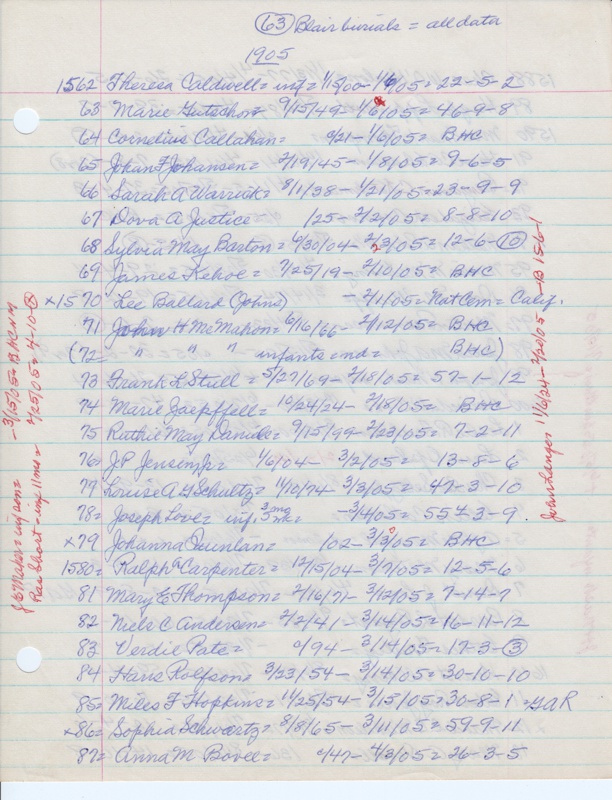 63 Blair burials = all data
1905
1562 Theresa Caldwell = inf = 1/15/00 - 1/6/05 = 22-5-2
63 Marie = 9/15/49 - 1/6/05 = 46-9-8
64 Cornelius Callahan = c/21 - 1/6/05 = BHC
65 Johan F Johansen = 2/19/45 - 1/8/05 = 9-6-5
66 Sarah A Warrick = 8/1/38 - 1/21/05 = 23-9-9
67 Dova A Justice 1/25 - 2/2/05 = 8-8-10
68 Sylvia May Baston = 6/30/04 - 2/3/05 = 12-6-10
69 James Kehoe = 7/25/19 - 2/10/05 = BHC
x1570 Lee Ballard (Johns) - 2/1/05 = Nat Cem = Calif.
71 John H McMahon = 6/16/66 - 2/12/05 = BHC
(72 " " " infants = nd = BHC)
73 Frank L Stull = 5/27/69 - 2/18/05 = 57-1-12
74 Marie Jaepffell = 10/24/24 - 2/18/05 = BHC
75 Ruthie May Daniels = 9/15/99 - 2/23/05 = 7-2-11
76 = J.P. Jensen Jr = 1/6/04 - 3/2/05 = 13-8-6
77 Louise A Schultz = 11/10/74 - 3/3/05 = 47-3-10
78 = Joseph Love = inf. 3 - 3/4/05 = 55-3-9.
x79 Johanna = 102 - 3/3/05 = BHC
1580 = Ralph Carpenter = 12/15/04 - 3/7/05 = 12-5-6
81 Mary E Thompson = 2/16/71 - 3/12/05 = 7-14-7
82 Niels C Andersen = 2/2/41 - 3/14/05 = 16-11-12
83 Verdie Pate = c/94 - 3/14/05 = 17-3-3
84 Hans Rolfson = 3/23/54 - 3/14/05 = 30-10-10
85 = Miles F Hopkins = 11/25/54 - 3/15/05 = 30-8-1 = GAR
x86 = Sophia Schwartz = 8/8/65 - 3/11/05 = 59-9-11
87 = Anna M Bovee = c/47 - 4/3/05 = 26-3-5
- 3/15/05 =
Short = inf 11 mo = 2/25/05 = 4-10-
11/6/24 - 2/20/05 - 15-6-1